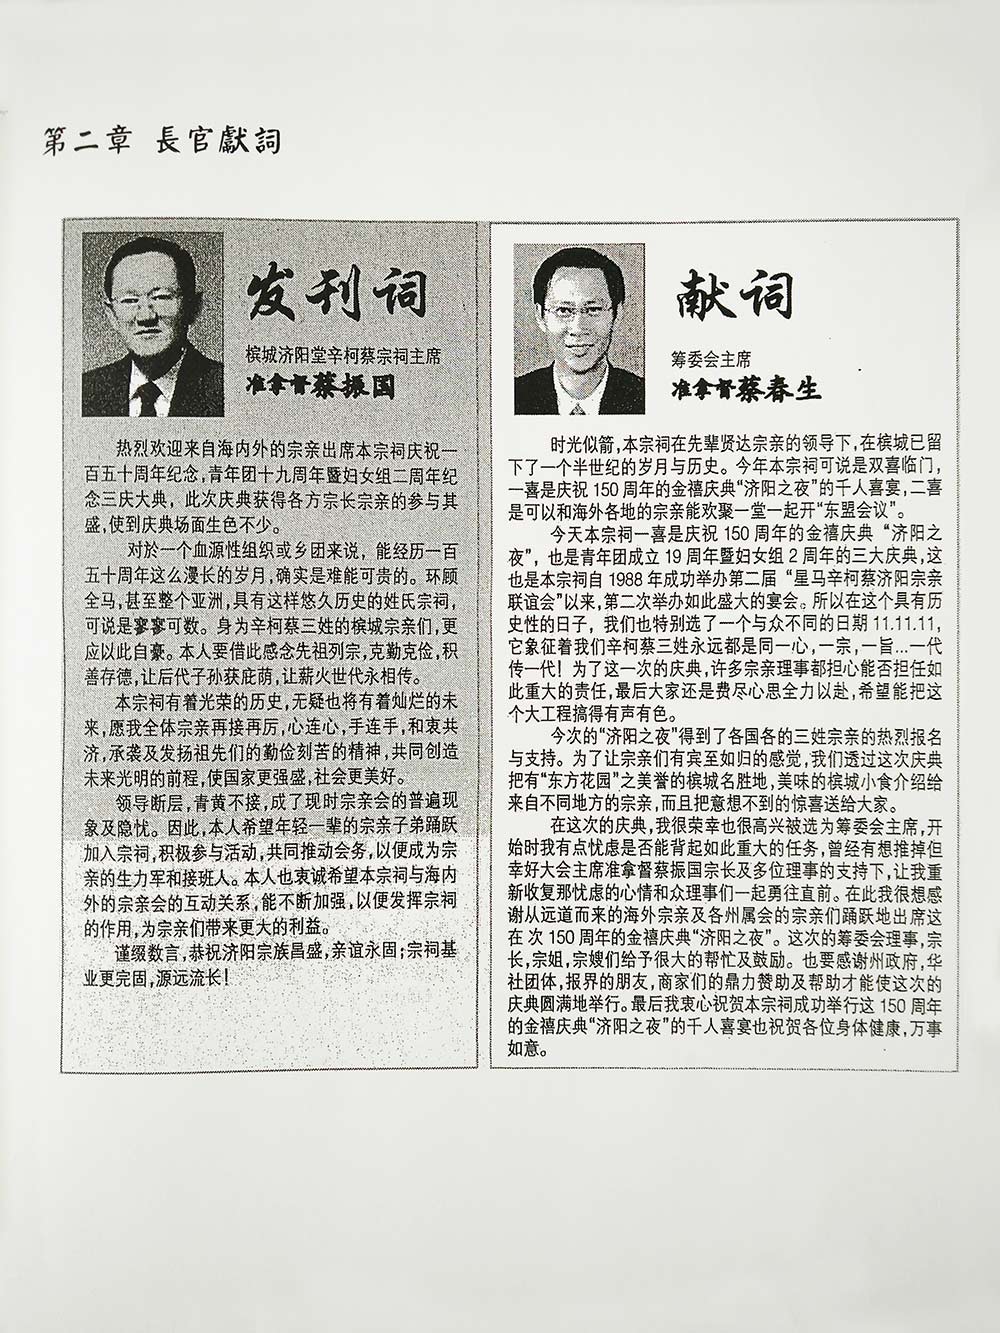 第二章 長官獻詞
发刊词
槟城济阳堂辛柯蔡宗祠主席
准拿督蔡振国
热烈欢迎来自海内外的宗亲出席本宗祠庆祝一
百五十周年纪念，青年团十九周年暨妇女组二周年纪
念三庆大典，此次庆典获得各方宗长宗亲的参与其
盛，使到庆典场面生色不少。
对於一个血源性组织或乡团来说，能经历一百
五十周年这么漫长的岁月，确实是难能可贵的。环顾
全马，甚至整个亚洲，具有这样悠久历史的姓氏宗祠，
可说是寥寥可数。身为辛柯蔡三姓的槟城宗亲们，更
应以此自豪。本人要借此感念先祖列宗，克勤克俭，积
善存德，让后代子孙获庇荫，让薪火世代永相传。
本宗祠有着光荣的历史，无疑也将有着灿烂的未
来，愿我全体宗亲再接再厉，心连心，手连手，和衷共
济，承袭及发扬祖先们的勤俭刻苦的精神，共同创造
未来光明的前程，使国家更强盛，社会更美好。
领导断层，青黄不接，成了现时宗亲会的普遍现
象及隐忧。因此，本人希望年轻一辈的宗亲子弟踊跃
加入宗祠，积极参与活动，共同推动会务，以便成为宗
亲的生力军和接班人。本人也衷诚希望本宗祠与海内
外的宗亲会的互动关系，能不断加强，以便发挥宗祠
的作用，为宗亲们带来更大的利益。
谨缀数言，恭祝济阳宗族昌盛，亲谊永固；宗祠基
业更完固，源远流长！
献词
筹委会主席
准拿督蔡春生
时光似箭，本宗祠在先辈贤达宗亲的领导下，在槟城已留
下了一个半世纪的岁月与历史。今年本宗祠可说是双喜临门，
一喜是庆祝150周年的金禧庆典“济阳之夜”的千人喜宴，二喜
是可以和海外各地的宗亲能欢聚一堂一起开“东盟会议”。
今天本宗祠一喜是庆祝150周年的金禧庆典 “济阳之
夜”，也是青年团成立19周年暨妇女组2周年的三大庆典，这
也是本宗祠自1988年成功举办第二届 “星马辛柯蔡济阳宗亲
联谊会”以来，第二次举办如此盛大的宴会。所以在这个具有历
史性的日子，我们也特别选了一个与众不同的日期11.11.11，
它象征着我们辛柯蔡三姓永远都是同一心，一宗，一旨...一代
传一代！为了这一次的庆典，许多宗亲理事都担心能否担任如
此重大的责任，最后大家还是费尽心思全力以赴，希望能把这
个大工程搞得有声有色。
今次的“济阳之夜”得到了各国各的三姓宗亲的热烈报名
与支持。为了让宗亲们有宾至如归的感觉，我们透过这次庆典
把有“东方花园”之美誉的槟城名胜地，美味的槟城小食介绍给
来自不同地方的宗亲，而且把意想不到的惊喜送给大家。
在这次的庆典，我很荣幸也很高兴被选为筹委会主席，开
始时我有点忧虑是否能背起如此重大的任务，曾经有想推掉但
幸好大会主席准拿督蔡振国宗长及多位理事的支持下，让我重
新收复那忧虑的心情和众理事们一起勇往直前。在此我很想感
谢从远道而来的海外宗亲及各州属会的宗亲们踊跃地出席这
在 次150周年的金禧庆典“济阳之夜”。这次的筹委会理事，宗
长，宗姐，宗嫂们给予很大的帮忙及鼓励。也要感谢州政府，华
社团体，报界的朋友，商家们的鼎力赞助及帮助才能使这次的
庆典圆满地举行。最后我衷心祝贺本宗祠成功举行这150周年
的金禧庆典“济阳之夜”的千人喜宴也祝贺各位身体健康，万事
如意。